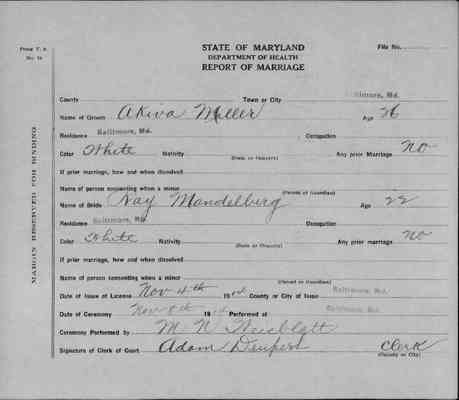 Form V. S.
No. 14
STATE OF MARYLAND
DEPARTMENT OF HEALTH
REPORT OF MARRIAGE
File No.
MARGIN RESERVED FOR BINDING
County Town or City ltimore, Md.
Name of Groom Akiva Miller Age 26
Residence Baltimore, Md. Occupation
Color White Nativity (State or Country) Any prior Marriage no
If prior marriage, how and when dissolved
Name of person consenting when a minor (Parent or Guardian)
Name of Bride Nay Mandelberg Age 22
Residence Baltimore, Md. Occupation
Color White Nativity (State or Country) Any prior Marriage no
If prior marriage, how and when dissolved
Name of person consenting when a minor (Parent or Guardian)
Date of Issue of License Nov 4th 19 County or City of Issue Baltimore, Md.
Date of Ceremony Nov 8th 19 Performed at Baltimore, Md.
Ceremony Performed by M N
Signature of Clerk of Court Adam Deupert Clerk
(County or City)